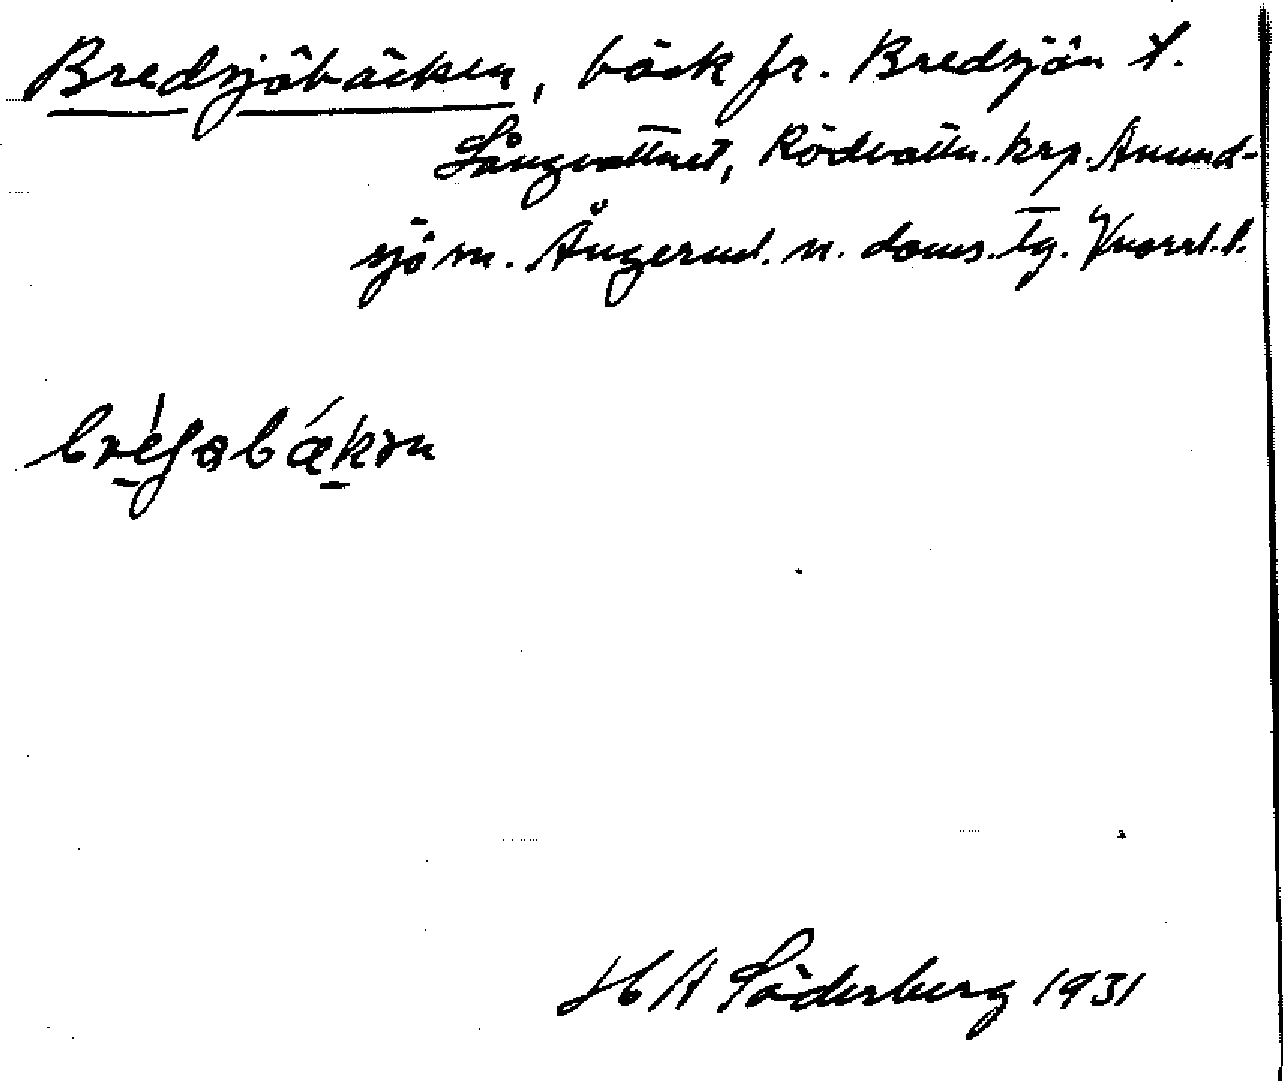 Bredsjöbäcken, bäck fr. Bredsjön t.
Långvattnet, Rödvattn. krp. Anund-
sjö sn. Ångerml. n. doms. tg. Väster
H A Söderberg 1931